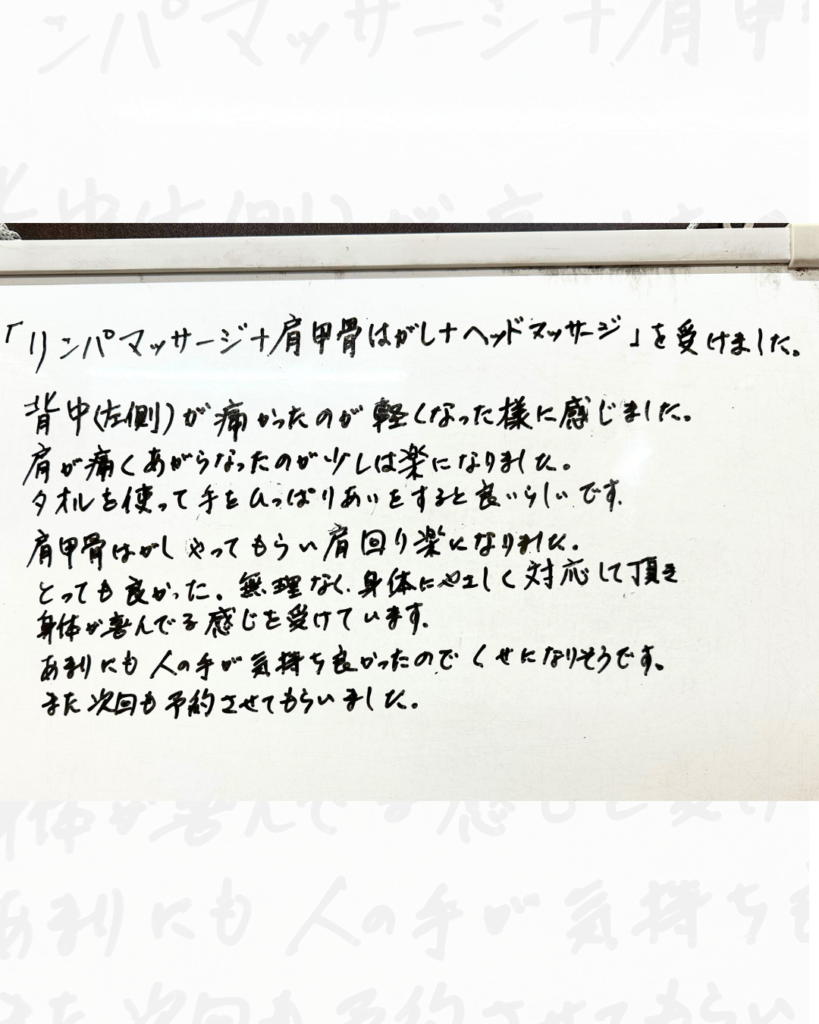 「リンパマッサージ+肩甲骨はがし+ヘッドマッサージ」を受けました。
背中(左側)が痛かったのが軽くなった様に感じました。
肩が痛くあがらなったのが少しは楽になりました。
タオルを使って手をひっぱりあいをすると良いらしいです.
肩甲骨はがしやってもらい肩回り楽になりました.
とっても良かった。無理なく、身体にやさしく対応して頂き
身体が喜んでる感じを受けています.
あまりにも人の手が気持ち良かったのでくせになりそうです。
また次回も予約させてもらいました。